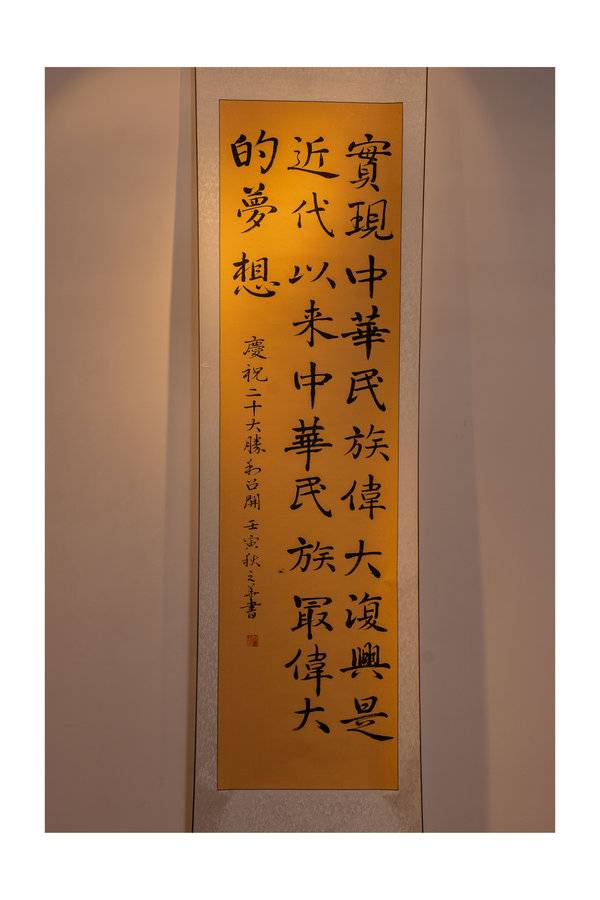 實現中華民族偉大復興是
近代以来中華民族最偉大
的夢想
慶祝二十大勝利召開 壬寅秋之華書